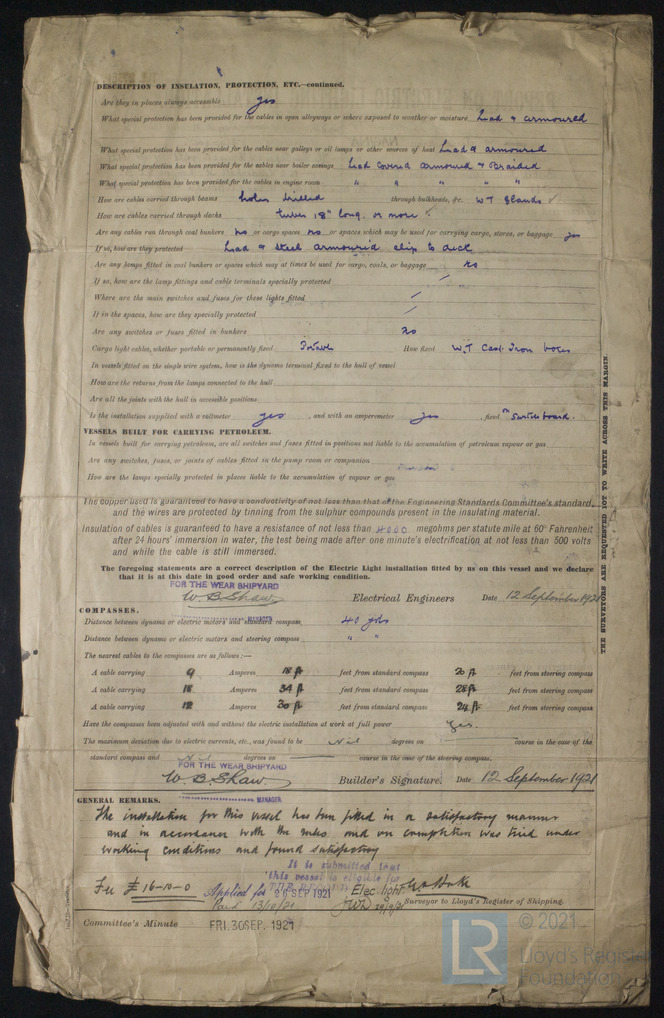 DESCRIPTION OF INSULATION, PROTECTION, ETC.—continued.
Are they in places always accessible yes
What special protection has been provided for the cables in open alleyways or where exposed to weather or moisture Lead & armoured
What special protection has been provided for the cables near galleys or oil lamps or other sources of heat Lead & armoured
What special protection has been provided for the cables near boiler casings Lead Covered armoured & Braided
What special protection has been provided for the cables in engine room " " " " "
How are cables carried through beams holes drilled through bulkheads, &c. W T Glands ✓
How are cables carried through decks tubes 18" long or more ✓
Are any cables run through coal bunkers no or cargo spaces no or spaces which may be used for carrying cargo, stores, or baggage yes
If so, how are they protected Lead & steel armoured clip to deck
Are any lamps fitted in coal bunkers or spaces which may at times be used for cargo, coals, or baggage no
If so, how are the lamp fittings and cable terminals specially protected
Where are the main switches and fuses for these lights fitted
If in the spaces, how are they specially protected
Are any switches or fuses fitted in bunkers no
Cargo light cables, whether portable or permanently fixed Portable How fixed W.T Cast Iron boxes
In vessels fitted on the single wire system, how is the dynamo terminal fixed to the hull of vessel
How are the returns from the lamps connected to the hull
Are all the joints with the hull in accessible positions
Is the installation supplied with a voltmeter yes , and with an amperemeter yes , fixed on Switchboard.
VESSELS BUILT FOR CARRYING PETROLEUM.
In vessels built for carrying petroleum, are all switches and fuses fitted in positions not liable to the accumulation of petroleum vapour or gas
Are any switches, fuses, or joints of cables fitted in the pump room or companion
How are the lamps specially protected in places liable to the accumulation of vapour or gas
The copper used is guaranteed to have a conductivity of not less than that of the Engineering Standards Committee's standard,
and the wires are protected by tinning from the sulphur compounds present in the insulating material.
Insulation of cables is guaranteed to have a resistance of not less than 4000 megohms per statute mile at 60° Fahrenheit
after 24 hours' immersion in water, the test being made after one minute's electrification at not less than 500 volts
and while the cable is still immersed.
The foregoing statements are a correct description of the Electric Light installation fitted by us on this vessel and we declare
that it is at this date in good order and safe working condition.
FOR THE WEAR SHIPYARD
W. B. Shaw Electrical Engineers Date 12 September 1921
MANAGER
COMPASSES.
Distance between dynamo or electric motors and standard compass 40 yds
Distance between dynamo or electric motors and steering compass " "
The nearest cables to the compasses are as follows:—
A cable carrying 9 Amperes 18 ft feet from standard compass 20 ft feet from steering compass
A cable carrying 18 Amperes 34 ft feet from standard compass 28 ft feet from steering compass
A cable carrying 12 Amperes 30 ft feet from standard compass 24 ft feet from steering compass
Have the compasses been adjusted with and without the electric installation at work at full power Yes.
The maximum deviation due to electric currents, etc., was found to be Nil degrees on course in the case of the
standard compass and Nil degrees on course in the case of the steering compass.
FOR THE WEAR SHIPYARD
W. B. Shaw Builder's Signature. Date 12 September 1921
MANAGER
GENERAL REMARKS.
The installation for this vessel has been fitted in a satisfactory manner
and in accordance with the rules and on completion was tried under
working conditions and found satisfactory
It is submitted that
this vessel is eligible for
THE RECORD Elec. light
Fee £16-0-0 Applied for 26 SEP 1921
Paid 13/10/21 Surveyor to Lloyd's Register of Shipping.
Committee's Minute FRI. 30 SEP. 1921
THE SURVEYORS ARE REQUESTED NOT TO WRITE ACROSS THIS MARGIN.
LR
© 2021
Lloyd's Register
Foundation